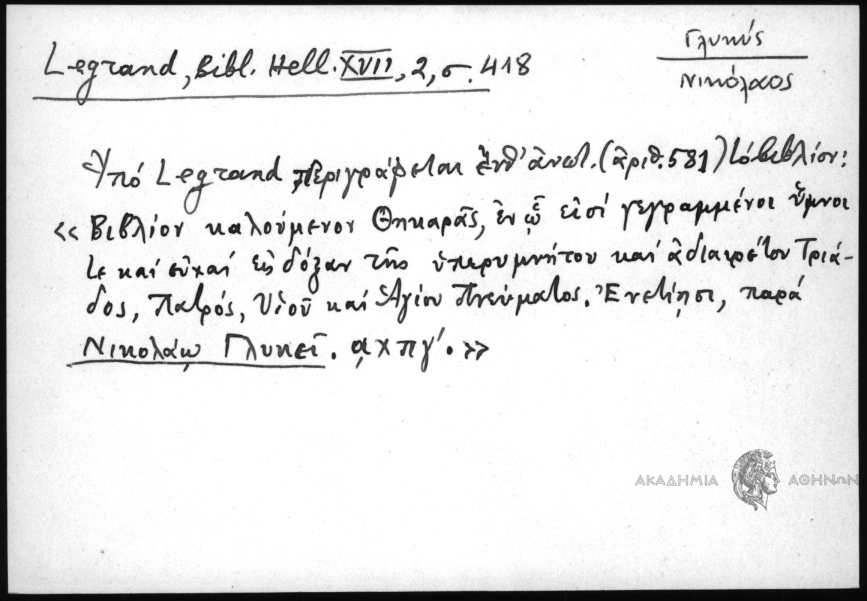 Γλυκύς
Legrand, Bibl. Hell. XVII, 2, σ. 418
Νικόλαος
Ὑπό Legrand περιγράφεται ἐνθ' ἀνωτ. (ἀριθ. 581) τό βιβλίον:
«Βιβλίον καλούμενον Θηκαρᾶς, ἐν ᾧ εἰσί γεγραμμένοι ὕμνοι
τε καί εὐχαί εἰς δόξαν τῆς ὑπερυμνήτου καί ἀδιαιρέτου Τριά-
δος, Πατρός, Υἱοῦ καί Ἁγίου Πνεύματος. Ἐνετίησι, παρά
Νικολάῳ Γλυκεῖ. ͵αχπγ'.»
ΑΚΑΔΗΜΙΑ ΑΘΗΝΩΝ